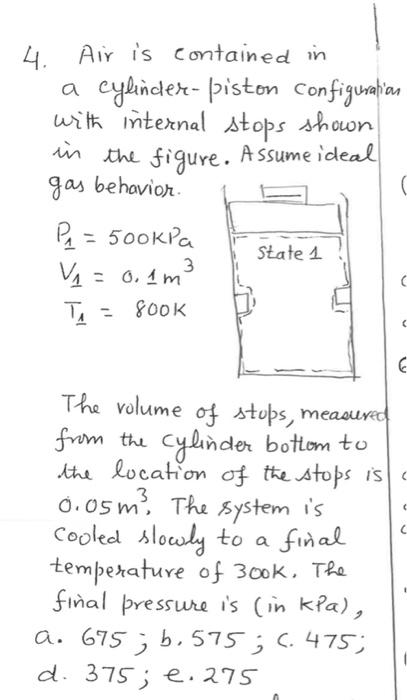 4. Air is contained in
a cylinder-piston configuration
with internal stops shown
in the figure. Assume ideal
gas behavior.
P1 = 500KPa
V1 = 0.1m³
T1 = 800K
State 1
The volume of stops, measured
from the cylinder bottom to
the location of the stops is
0.05m³. The system is
cooled slowly to a final
temperature of 300K. The
final pressure is (in kPa),
a. 675; b. 575; c. 475;
d. 375; e. 275